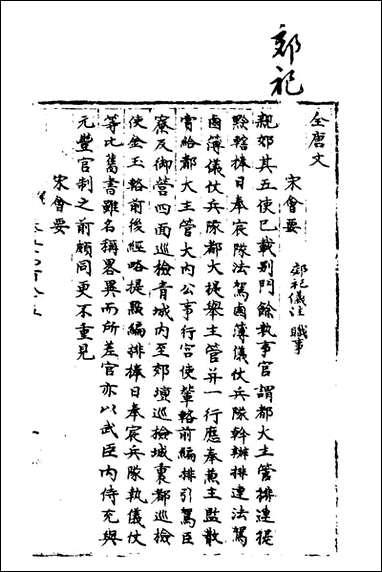 郊祀
全唐文
宋會要 郊祀儀注 職事
親郊其五使已載别門餘執事官謂都大主管排連提
㸃轄捧日奉宸隊法駕鹵簿儀仗兵隊幹辦排連法駕
鹵薄儀仗兵隊都大提舉主管并一行應奉兼主監散
賞給都大主管大内公事行宫使輦輅前編排引駕臣
寮及御營四面廵檢青城内至郊壇廵檢城裏都廵檢
使金玉輅前後經略提㸃編排捧日奉宸兵隊執儀仗
等比舊書雖名稱畧異而所差官亦以武臣内侍充與
元豐官制之前頗同更不重見
宋會要